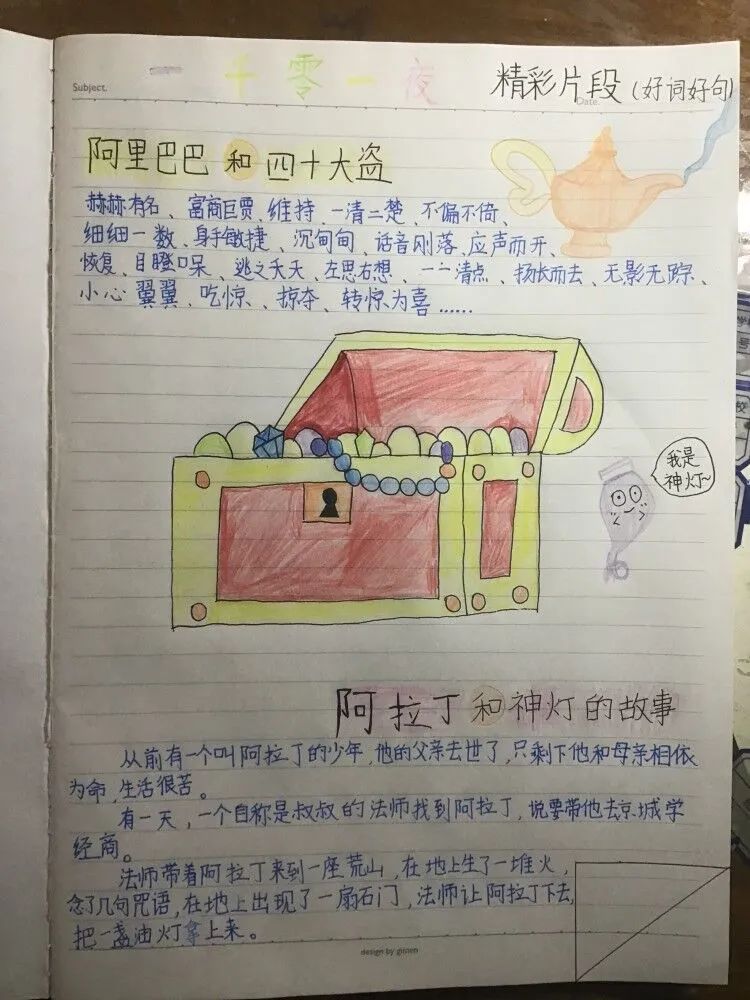 Subject.
一千零一夜
精彩片段（好词好句）
Date.
阿里巴巴和四十大盗
赫赫有名、富商巨贾、维持、一清二楚、不偏不倚、
细细一数、身手敏捷、沉甸甸、话音刚落、应声而开、
恢复、目瞪口呆、逃之夭夭、左思右想、一一清点、扬长而去、无影无踪、
小心翼翼、吃惊、掠夺、转惊为喜……
我是
神灯~
阿拉丁和神灯的故事
从前有一个叫阿拉丁的少年，他的父亲去世了，只剩下他和母亲相依
为命，生活很苦。
有一天，一个自称是叔叔的法师找到阿拉丁，说要带他去京城学
经商。
法师带着阿拉丁来到一座荒山，在地上生了一堆火，
念了几句咒语，在地上出现了一扇石门，法师让阿拉丁下去，
把一盏油灯拿上来。